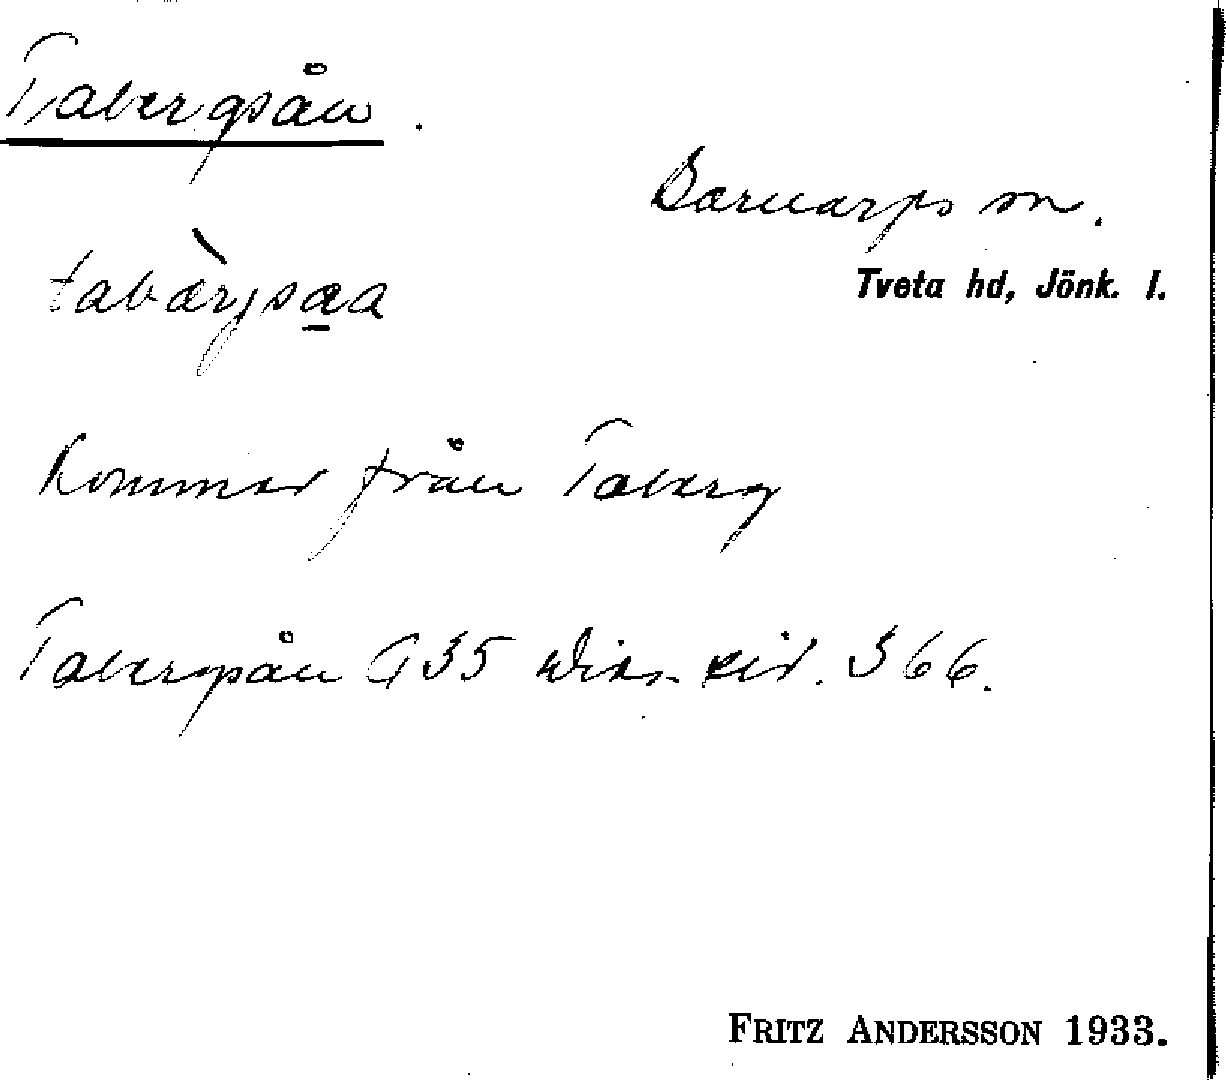 Tabergsån.
Barnarps sn.
tabàrjsaa
Tveta hd, Jönk. l.
Kommer från Taberg
Tabergsån G 35 sid. 366.
FRITZ ANDERSSON 1933.